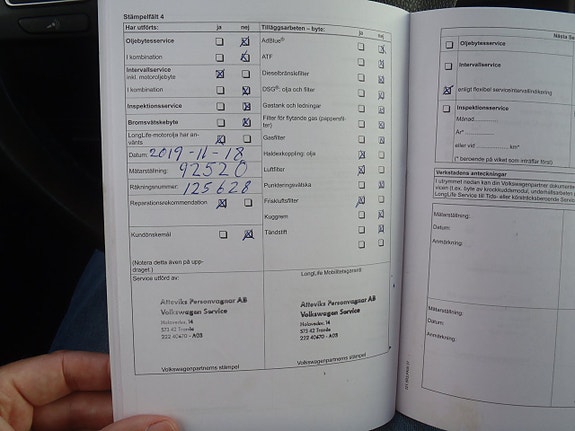 Stämpelfält 4
Har utförts: ja nej
Oljebytesservice
I kombination
Intervallservice
inkl. motoroljebyte
I kombination
Inspektionsservice
Bromsvätskebyte
LongLife-motorolja har an-
vänts
Datum: 2019-11-18
Mätarställning: 92520
Räkningsnummer: 125628
Reparationsrekommendation
Kundönskemål
(Notera detta även på upp-
draget.)
Service utförd av:
Atteviks Personvagnar AB
Volkswagen Service
573 42 Tranås
222 40670 - A03
Volkswagenpartnerns stämpel
Tilläggsarbeten – byte: ja nej
AdBlue®
ATF
Dieselbränslefilter
DSG®: olja och filter
Gastank och ledningar
Filter för flytande gas (pappersfil-
ter)
Gasfilter
Haldexkoppling: olja
Luftfilter
Punkteringsvätska
Friskluftsfilter
Kuggrem
Tändstift
LongLife Mobilitetsgaranti
Atteviks Personvagnar AB
Volkswagen Service
573 42 Tranås
222 40670 - A03
Volkswagenpartnerns stämpel
Nästa Se
Oljebytesservice
Intervallservice
enligt flexibel serviceintervallindikering
Inspektionsservice
Månad
År*
eller vid km*
(* beroende på vilket som inträffar först)
Verkstadens anteckningar
I utrymmet nedan kan din Volkswagenpartner dokument
LongLife Service till Tids- eller körsträckeberoende Servic
Mätarställning:
Datum:
Anmärkning:
Mätarställning:
Datum:
Anmärkning: